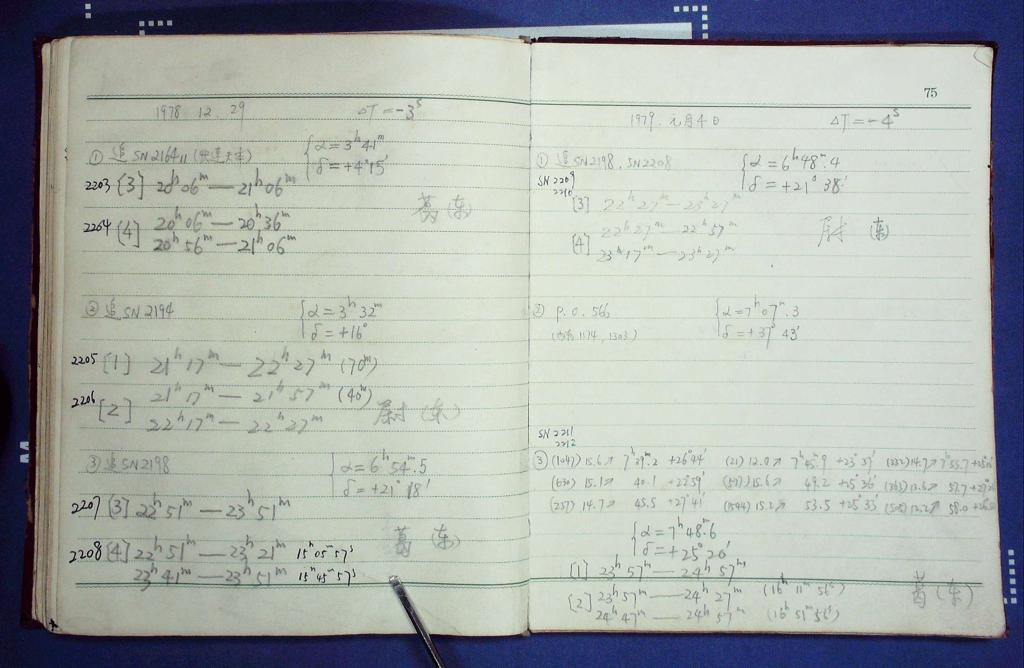 1978 12. 29 ΔT=-3ˢ
① 追 SN2164
α=3ʰ41ᵐ
δ=+4°15′
2203 [3] 20ʰ06ᵐ—21ʰ06ᵐ
葛(东)
2204 [4] 20ʰ06ᵐ—20ʰ36ᵐ
20ʰ56ᵐ—21ʰ06ᵐ
② 追 SN2194
α=3ʰ32ᵐ
δ=+16°
2205 [1] 21ʰ17ᵐ—22ʰ27ᵐ (70ᵐ)
2206 [2] 21ʰ17ᵐ—21ʰ57ᵐ (40ᵐ)
22ʰ17ᵐ—22ʰ27ᵐ
尉(东)
③ 追 SN2198
α=6ʰ54ᵐ.5
δ=+21°18′
2207 [3] 22ʰ51ᵐ—23ʰ51ᵐ
葛(东)
2208 [4] 22ʰ51ᵐ—23ʰ21ᵐ 15ʰ05ᵐ57ˢ
23ʰ41ᵐ—23ʰ51ᵐ 15ʰ45ᵐ57ˢ
75
1979. 元月4日 ΔT=-4ˢ
① 追 SN2198, SN2208
α=6ʰ48ᵐ.4
δ=+21°38′
SN2209
2210
[3] 22ʰ27ᵐ—23ʰ27ᵐ
尉(东)
[4] 22ʰ27ᵐ—22ʰ57ᵐ
23ʰ17ᵐ—23ʰ27ᵐ
② P.O. 566
α=7ʰ07ᵐ.3
δ=+37°43′
1174, 1303)
SN2211
2212
③ (1047) 15.6↗ 7ʰ29ᵐ.2 +26°44′ (21) 12.0↗ 7ʰ45ᵐ.9 +23°37′ 14.7↗
(630) 15.1↗ 40.1 +22°59′ 15.6↗ 49.2 +25°36′
(257) 14.7↗ 45.5 +27°41′ 15.2↗ 53.5 +25°33′ 58.0
α=7ʰ48ᵐ.6
δ=+25°20′
[1] 23ʰ57ᵐ—24ʰ57ᵐ
[2] 23ʰ57ᵐ—24ʰ27ᵐ (16ʰ11ᵐ56ˢ)
24ʰ47ᵐ—24ʰ57ᵐ (16ʰ51ᵐ56ˢ)
葛(东)